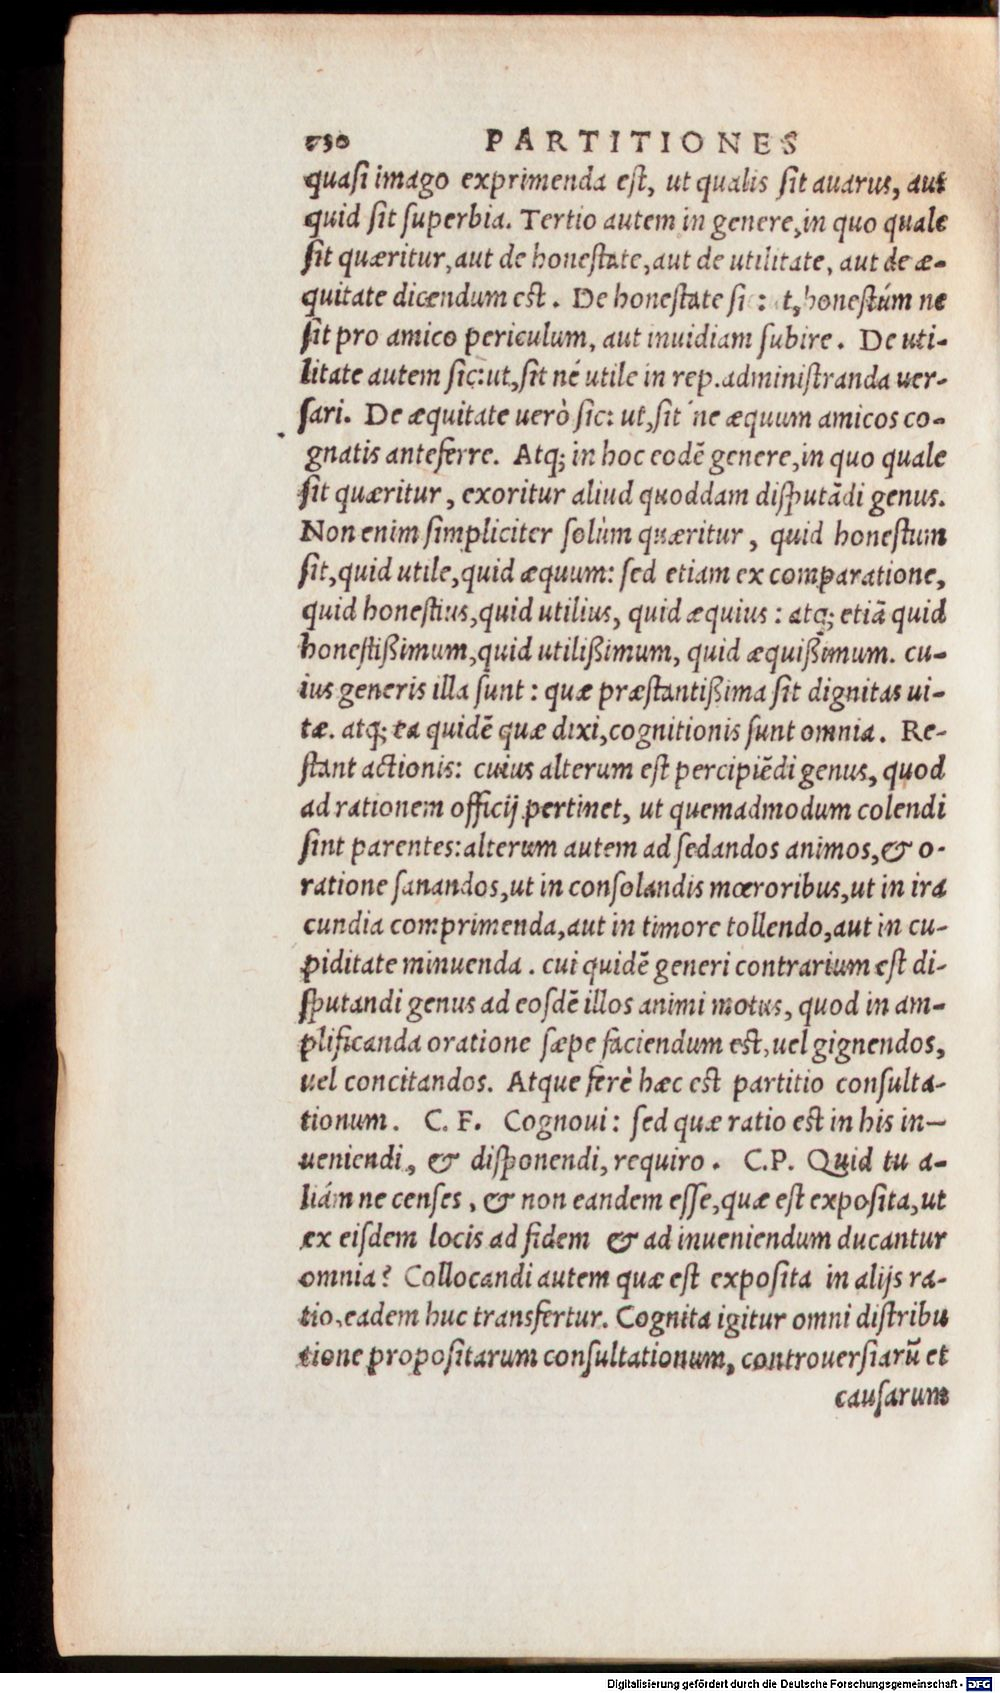 730 PARTITIONES
quasi imago exprimenda est, ut qualis sit auarus, aut
quid sit superbia. Tertio autem in genere, in quo quale
sit quæritur, aut de honestate, aut de utilitate, aut de æ-
quitate dicendum est. De honestate si : t, honestúm ne
sit pro amico periculum, aut inuidiam subire. De uti-
litate autem sic: ut, sit né utile in rep. administranda uer-
sari. De æquitate uerò sic: ut, sit 'ne æquum amicos co-
gnatis anteferre. Atq; in hoc eodē genere, in quo quale
sit quæritur, exoritur aliud quoddam disputādi genus.
Non enim simpliciter solùm quæritur, quid honestum
sit, quid utile, quid æquum: sed etiam ex comparatione,
quid honestius, quid utilius, quid æquius: atq; etiā quid
honestißimum, quid utilißimum, quid æquißimum. cu-
ius generis illa sunt: quæ præstantißima sit dignitas ui-
tæ. atq; ea quidē quæ dixi, cognitionis sunt omnia. Re-
stant actionis: cuius alterum est percipiēdi genus, quod
ad rationem officij pertinet, ut quemadmodum colendi
sint parentes: alterum autem ad sedandos animos, & o-
ratione sanandos, ut in consolandis mœroribus, ut in ira
cundia comprimenda, aut in timore tollendo, aut in cu-
piditate minuenda. cui quidē generi contrarium est di-
sputandi genus ad eosdē illos animi motus, quod in am-
plificanda oratione sæpe faciendum est, uel gignendos,
uel concitandos. Atque ferè hæc est partitio consulta-
tionum. C. F. Cognoui: sed quæ ratio est in his in-
ueniendi, & disponendi, requiro. C.P. Quid tu a-
liám ne censes, & non eandem esse, quæ est exposita, ut
ex eisdem locis ad fidem & ad inueniendum ducantur
omnia? Collocandi autem quæ est exposita in alijs ra-
tio, eadem huc transfertur. Cognita igitur omni distribu
tione propositarum consultationum, controuersiarū et
causarum
Digitalisierung gefördert durch die Deutsche Forschungsgemeinschaft - DFG